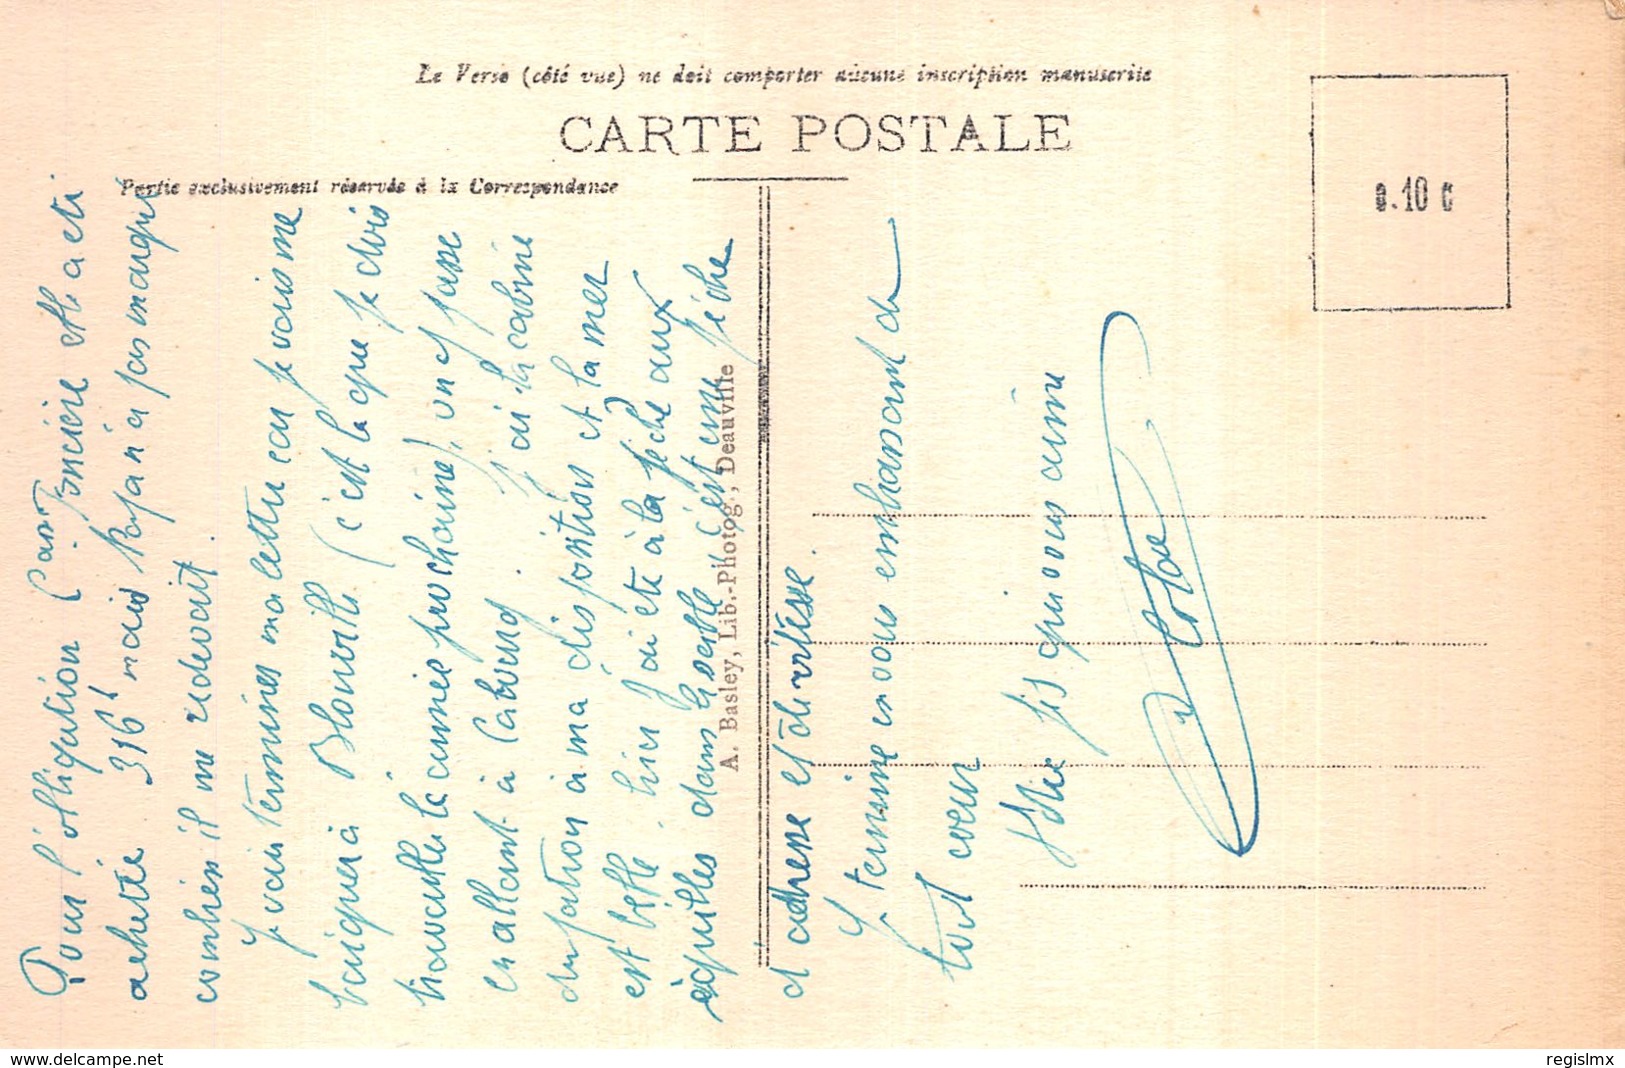 Le Verso (côté vue) ne doit comporter aucune inscription manuscrite
CARTE POSTALE
Partie exclusivement réservée à la Correspondance
0.10 c
A. Basley, Lib.-Photog., Deauville
Pour l'obligation foncière elle a été
achetée 316f mais Papa n'a pas marqué
combien il me redevait.
Je vais terminer ma lettre car je vais me
baigner à Blonville (c'est là que je dois
travailler l'année prochaine), on y passe
en allant à Cabourg. J'ai la cabine
du patron à ma disposition et la mer
est belle. hier j'ai été à la pêche aux
équilles dans le sable c'est une pêche
d'adresse et de vitesse.
Je termine en vous embrassant de
tout cœur
Votre fils qui vous aime
www.delcampe.net
regislmx